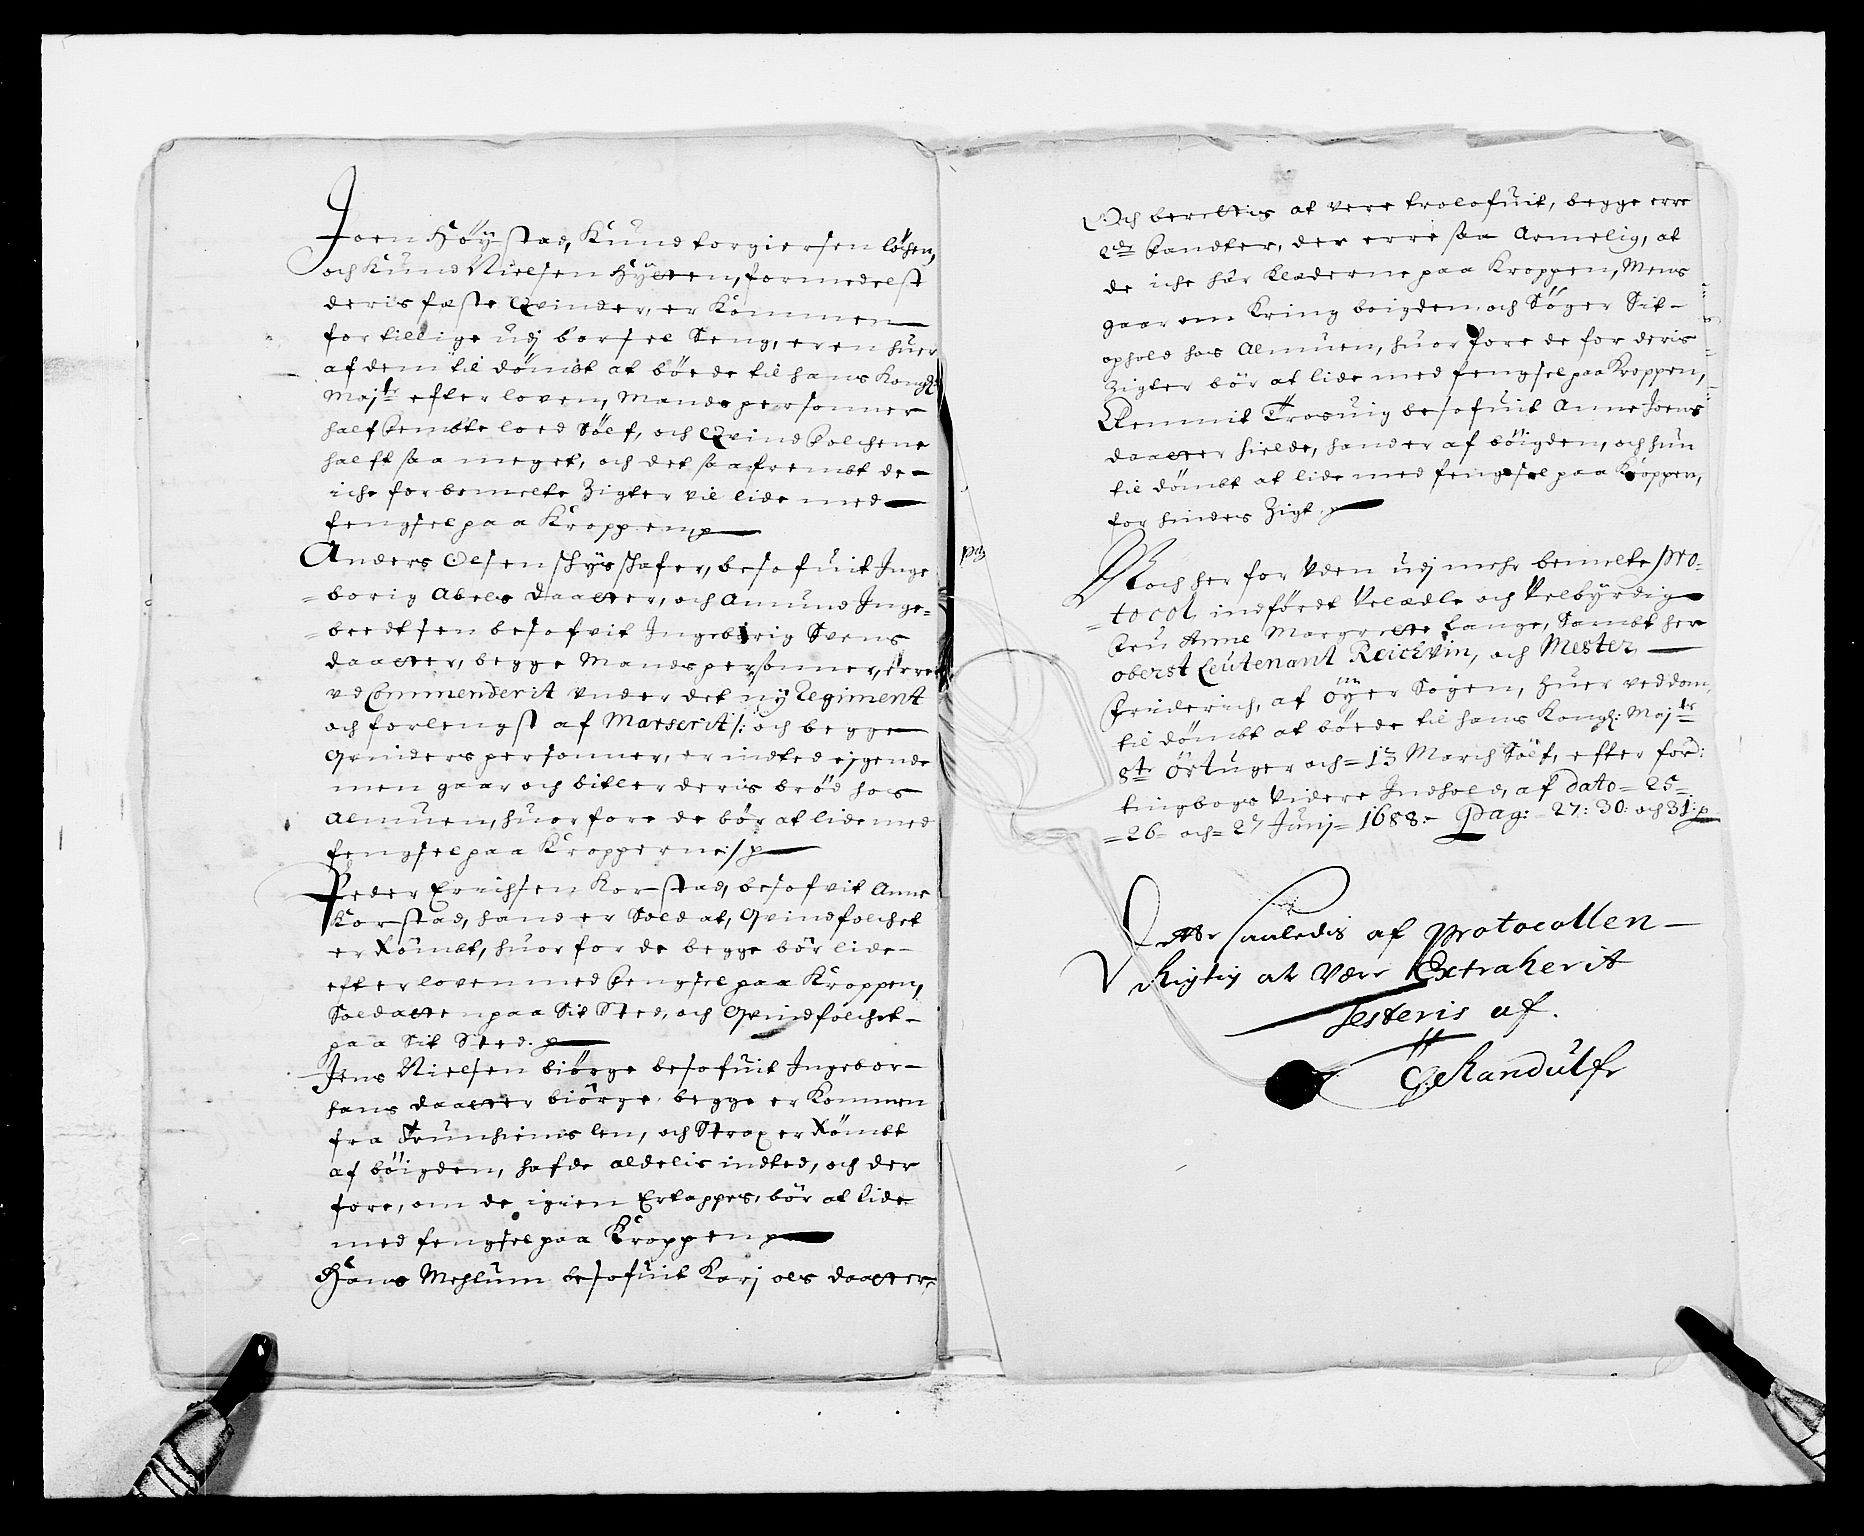 Joen Höÿstad, Knud torgiersen löchen,
och Knud Nielsen Hÿlten, formedelst
deris fæste Qvinder, er kommen
for tillige udj barsel Seng, eren huer
af dem til dömbt at böede til hans Kongl:
Majtz efter loven, Mands personner
half fembte loed Sölf, och Qvind folchene
halft saa meget, och det saa frembt de
iche forbemelte Zigter vil lide med
fengsel paa Kroppen p
Anders Olsen besofuit Inge
borig Abels daatter, och Amund Inge-
bredtsen besofvit Ingeborig Svens
daatter, begge Mands personner, erre
vd Commenderit vnder det nÿ Regiment
och forlengst af Marserit /: och begge
qvinders personner, er indted eÿgende
men gaar och bitler deris bröd hos
Almuen, huorfore de bör at lide med
fengsel paa Kropperne /p
Peder Erichsen Korstad, besofvit Anne
Korstad, hand er Soldat, qvindfolchet
er Römbt, huorfor de begge bör lide
efter loven med fengsel paa Kroppen,
Soldatten paa Sit Sted, och Qvindfolchet
paa Sit Sted. p
Jens Nielsen biörge besofuit Ingebor
hans daatter biörge, begge er Kommen
fra Trunhiems len, och Strax er Römbt
af böigden, hafde aldelis indted, och der
fore, om de igien Ertappes, bör at lide
med fengsel paa Kroppen p
Hans Mehlum besofuit Karj ols daatter
Och berettis at vere trolofuit, begge erre
der erre saa Armelig, at
de iche har klæderne paa Kroppen, Mens
gaar om Kring böigden och Söger Sit
ophold hos Almuen, huorfore de for deris
Zigter bör at lide med fengsel paa Kroppen,
Clemmit Trosuig besofuit Anne Joens
daatter hielde, hand er af böigden, och hun
til dömbt at lide med fengsel paa Kroppen,
for hindes Zigt p
Noch her for Uden udj mehr bemelte pro-
tocol indfördt Velædle och Velbyrdige
Fru Anne Margrete Lange, Sambt her
oberst Leutenant Reichvin, och Mester
Friderich, af Öÿer Sogen, huer ved dom
til dömbt at böede til hans Kongl: Majtz
8te Örtuger och 13 March Sölf, efter förd:
tingbogs Videre Indhold, af dato 25
26 och 27 Junj 1688. Pag: 27: 30: och 31: p
Dette saaledis af Protocollen
Rigtig at være Extraherit
Testeris af.
G: Randulf